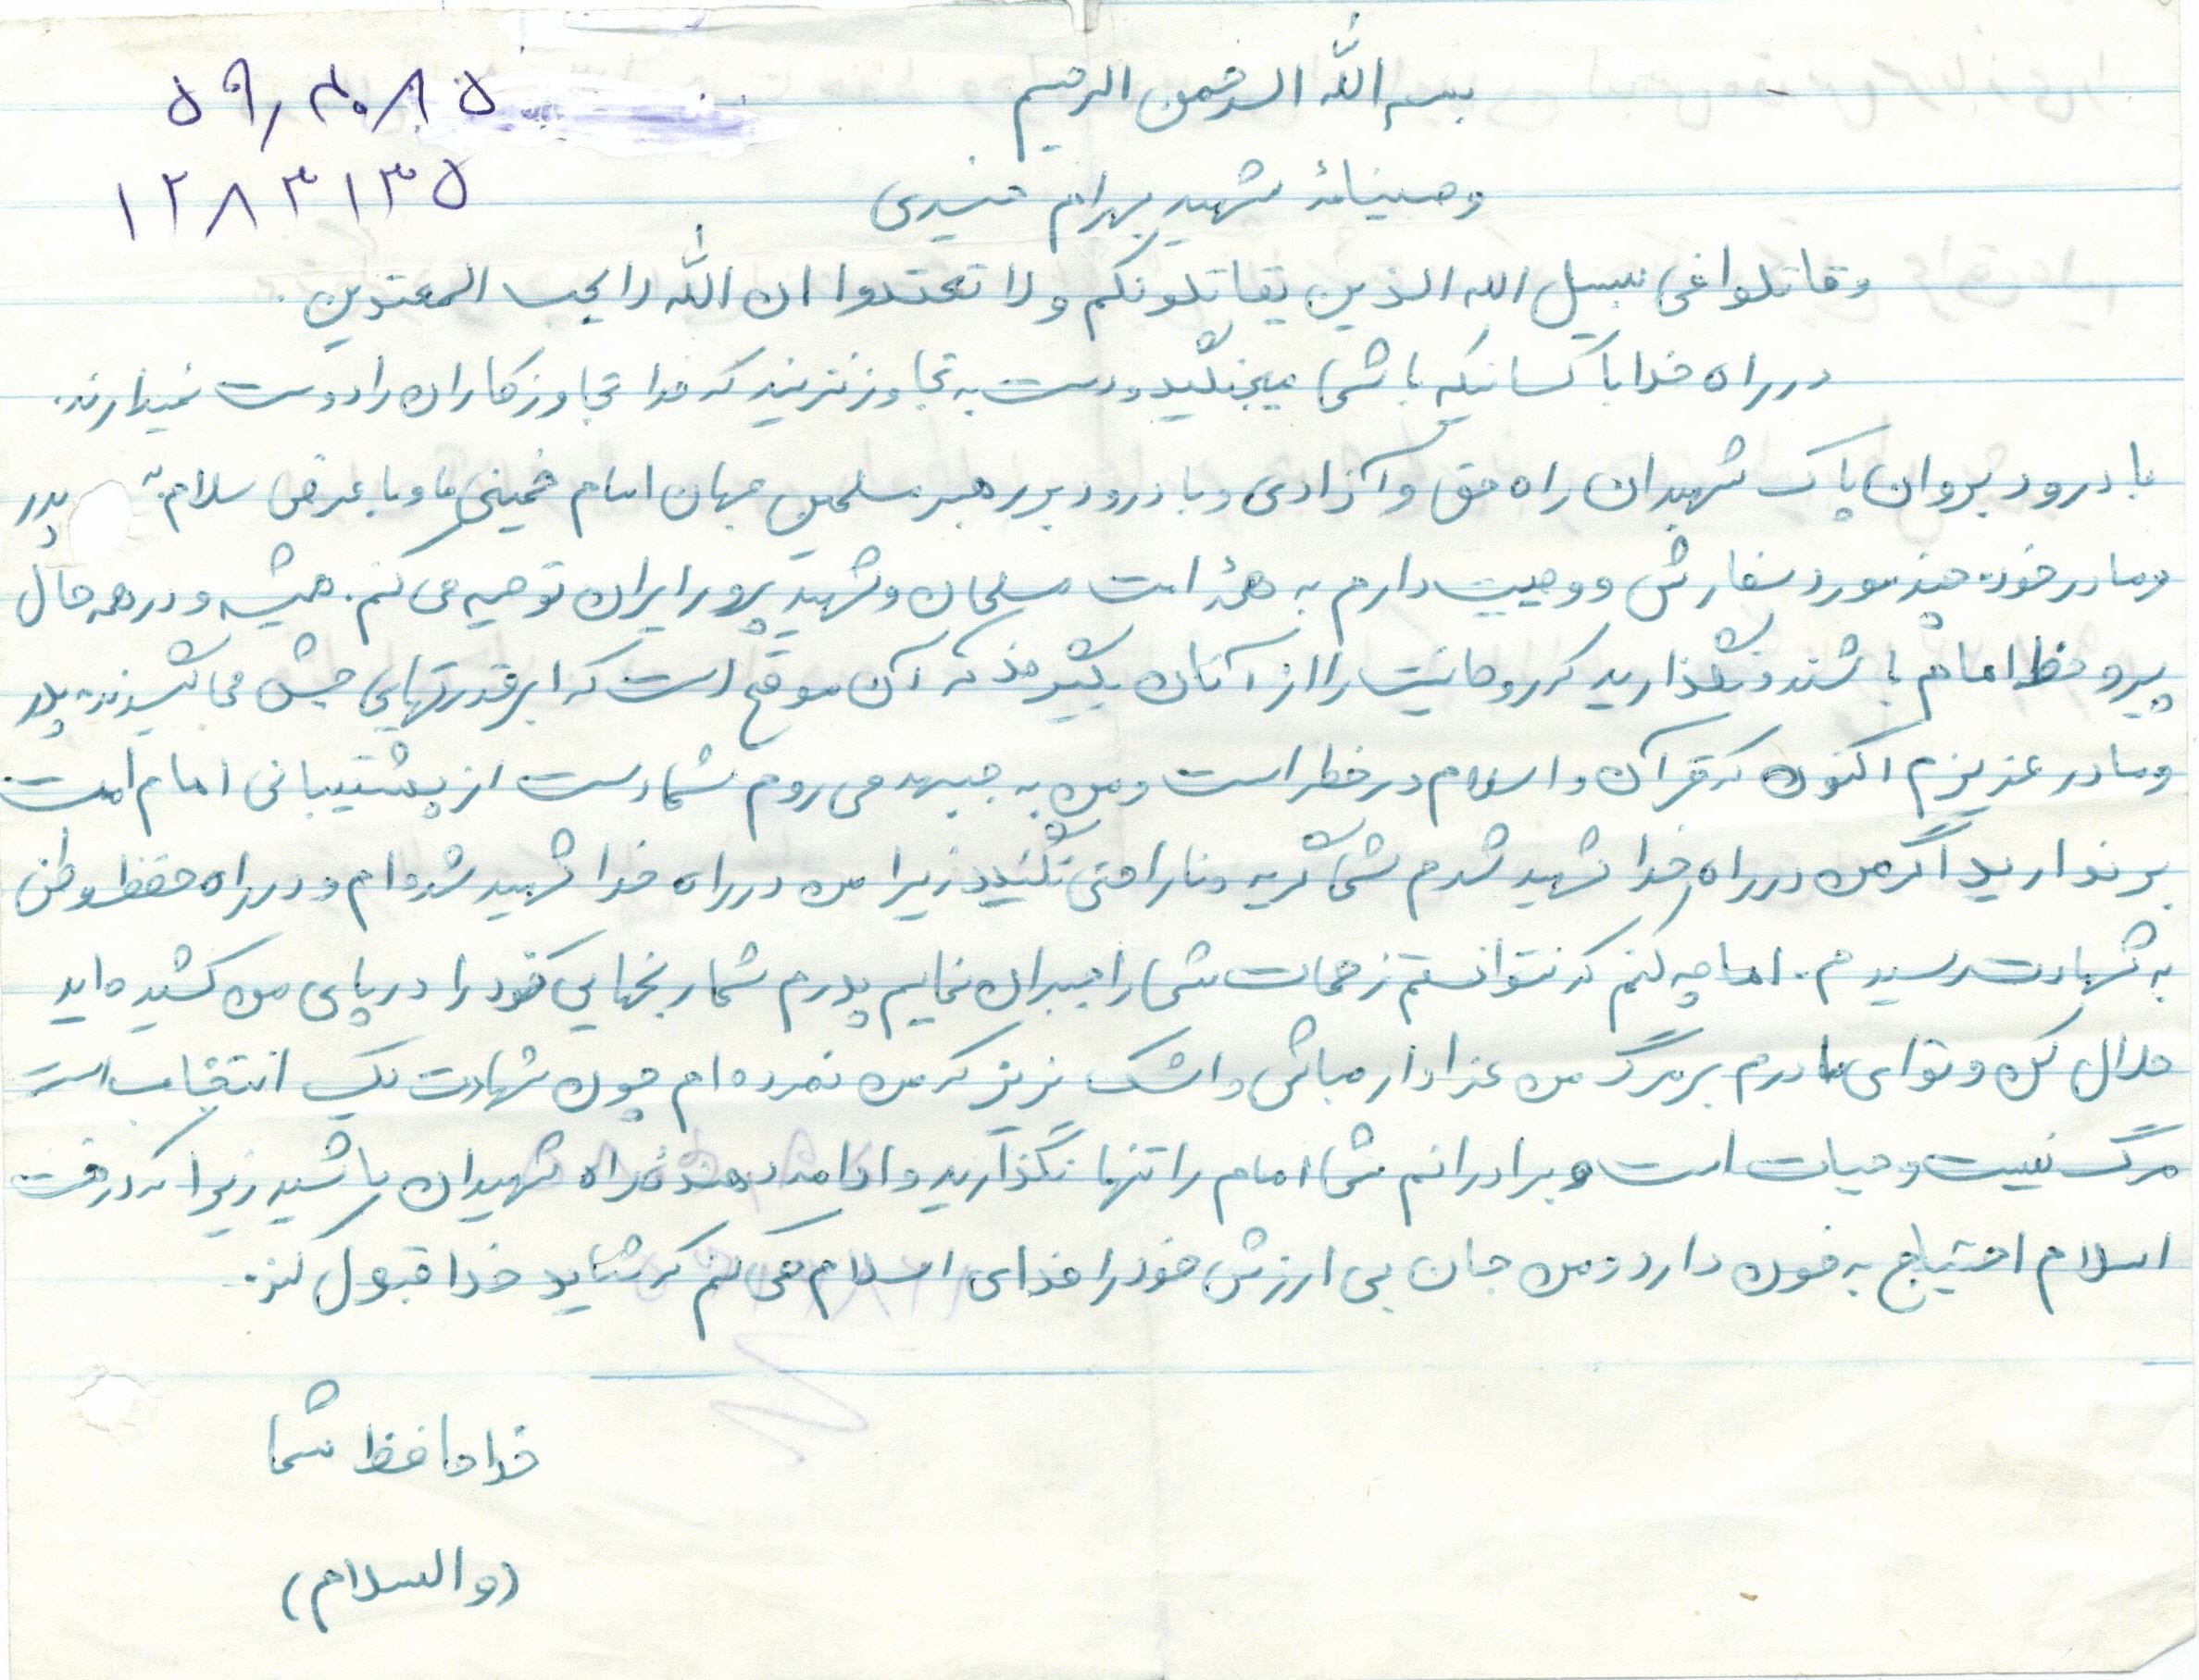 بسم الله الرحمن الرحیم
۵۹٫۳۰۸۵
وصیتنامهٔ شهید بهرام
۱۲۸۳۱۳۵
وقاتلوا فی سبیل الله الذین یقاتلونکم ولا تعتدوا ان الله لا یحب المعتدین.
در راه خدا با کسانیکه با شما میجنگید ودست به تجاوز نزنید که خدا تجاوزکاران را دوست نمیدارند.
با درود بروان پاک شهیدان راه حق و آزادی و با درود بررهبر مسلمین جهان امام خمینی ما و با عرض سلام به پدر
ومادر خود چند مورد سفارش و وصیت دارم به همهٔ امت مسلمان و شهید پرور ایران توصیه می کنم. همیشه و در همه حال
پیرو خط امام باشند و نگذارید که روحانیت را از آنان بگیرند که آن موقع است که ابرقدرتهایی جشن می گیرند پدر
ومادر عزیزم اکنون که قرآن و اسلام در خطر است ومن به جبهه می روم شما دست از پشتیبانی امام امت
برندارید اگر من در راه خدا شهید شدم شما گریه وناراحتی نکنید زیرا من در راه خدا شهید شده ام و در راه حفظ وطن
به شهادت رسیدم. اما چه کنم که نتوانستم زحمات شما را جبران نمایم پدرم شما رنجهایی خود را در پای من کشیده اید
حلال کن و تو ای مادرم بر مرگ من عزادار مباش و اشک نریز که من نمرده ام چون شهادت یک انتخاب است
مرگ نیست وحیات است و برادرانم شما امام را تنها نگذارید و ادامه دهندهٔ راه شهیدان باشید زیرا که درخت
اسلام احتیاج به خون دارد ومن جان بی ارزش خود را فدای اسلام می کنم که شاید خدا قبول کند.
خداحافظ شما
(والسلام)